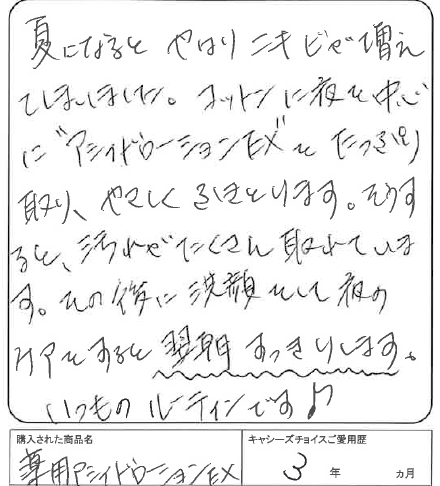 夏になると やはり ニキビが増え
てしまいました。コットンに夜を中心
に"アシィドローションEX"を たっぷり
取り、やさしく ふきとります。そうす
ると、汚れがたくさん取れていま
す。その後に洗顔をして夜の
ケアをすると 翌朝 すっきりします。
いつものルーティンです♪
購入された商品名
薬用アシィドローションEX
キャシーズチョイスご愛用歴
3 年 ヵ月